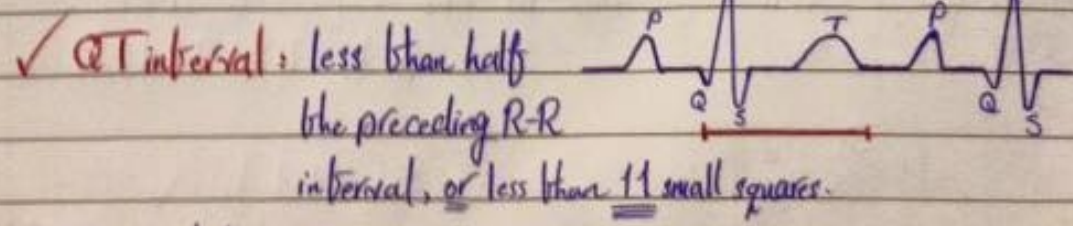 ✓ QT interval: less than half
the preceding R-R
interval, or less than 11 small squares.
P T P
Q S Q S